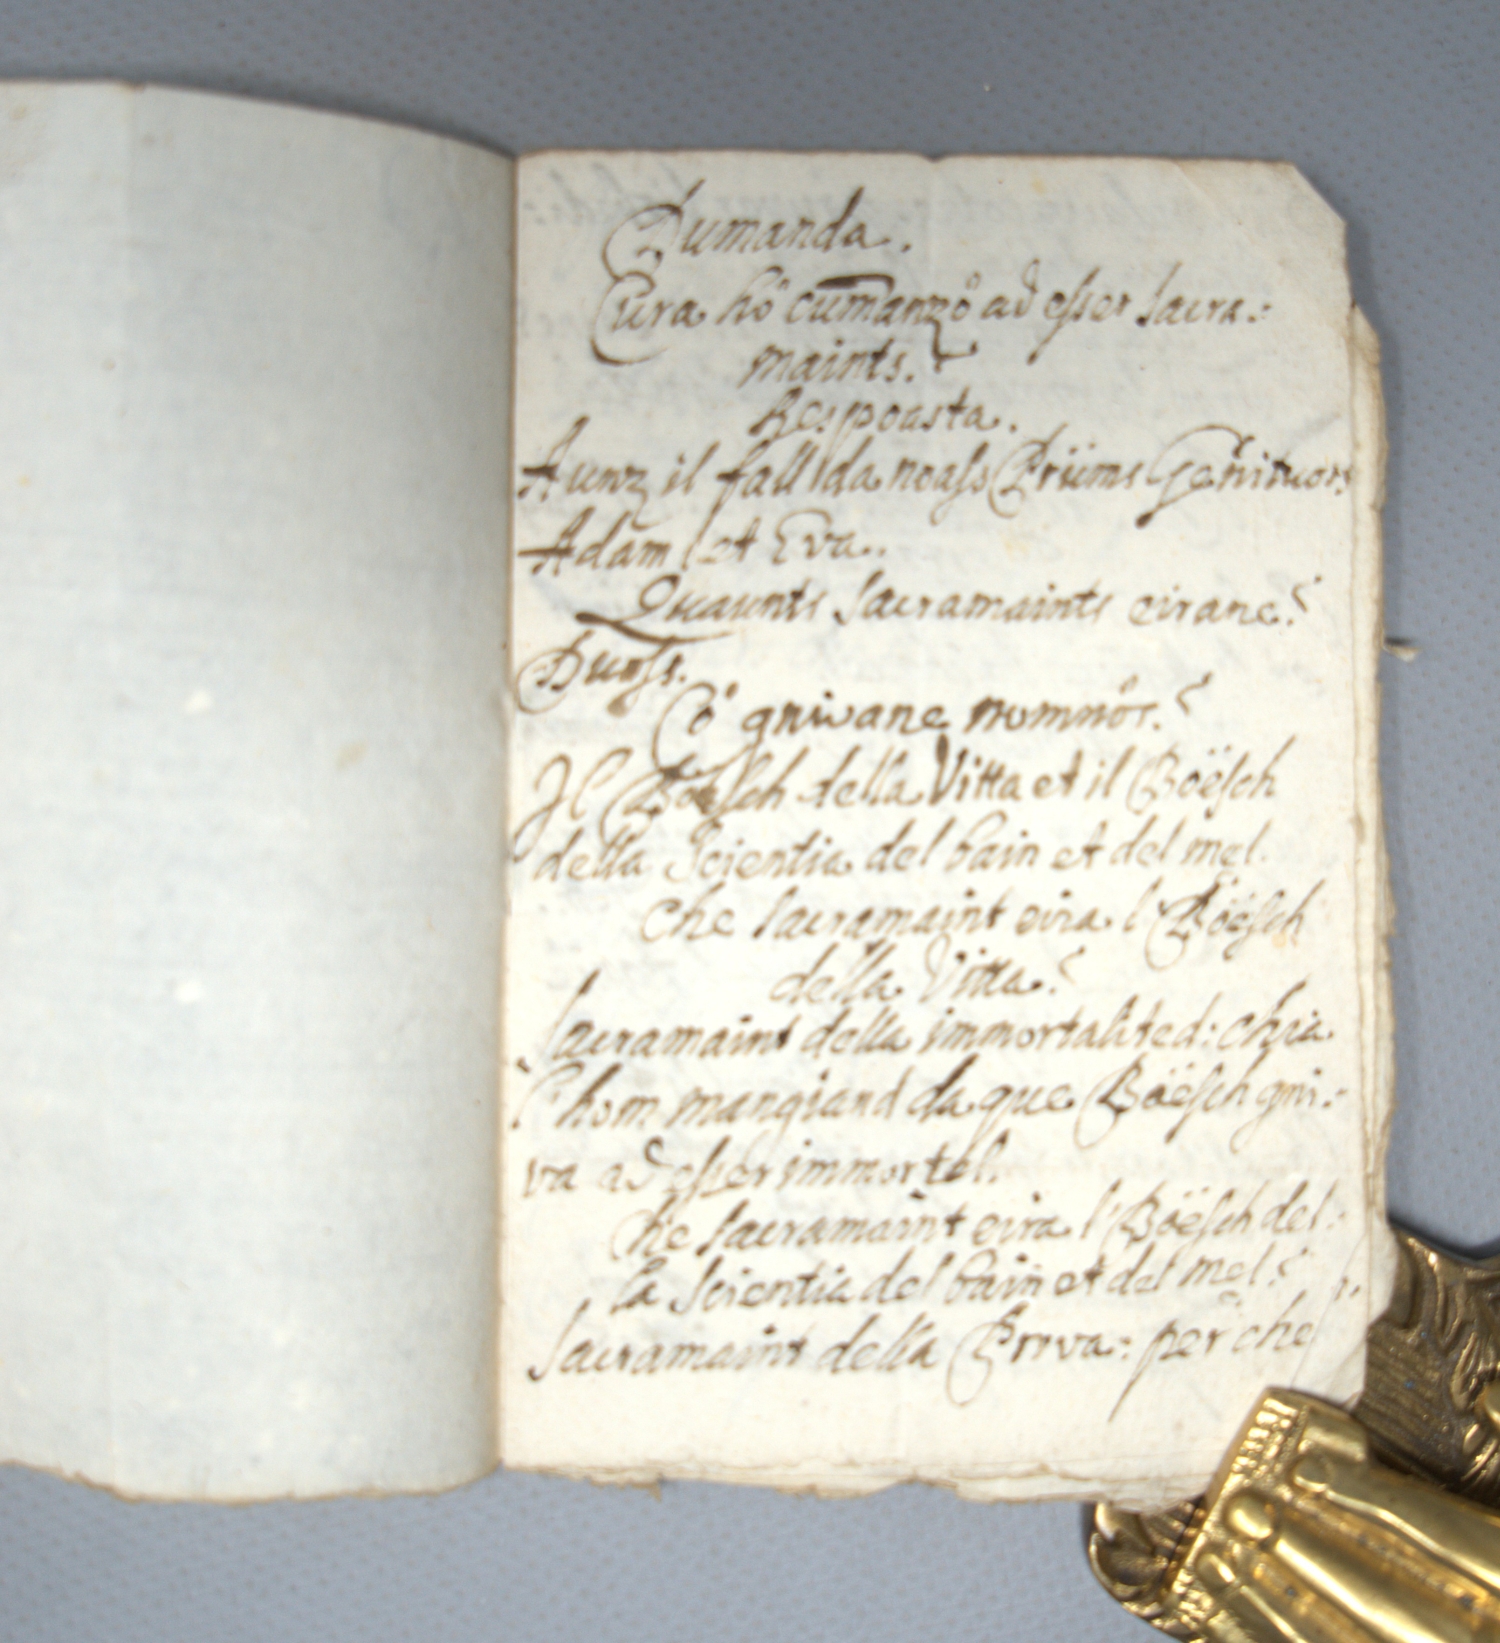 Dumanda.
Cura hò cumanzò ad esser sacra:
maints.?
Respoasta.
Aunz il fall da noass Prüms Genituors
Adam et Eva.
Quaunts sacramaints eirane?
Duoss.
Cò gnivane nomnòs.?
Il Böesch della Vitta et il Böesch
della Scientia del bain et del mel.
che sacramaint eira l Böesch
della Vitta?
Sacramaint della immortalited: chia
l'hom mangiand da que Böesch gni:
va ad esser immortel.
Che sacramaint eira l'Böesch del:
la Scientia del bain et del mel?
Sacramaint della Prova: per che